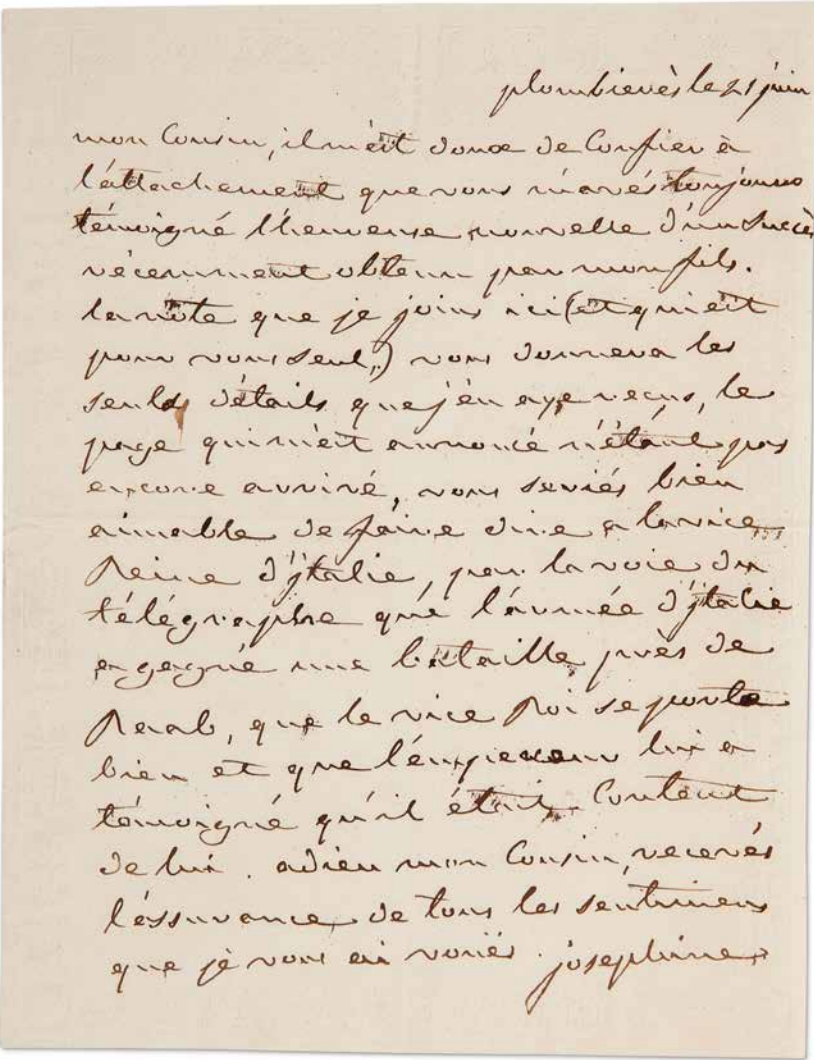 plombierès le 21 juin
mon Cousin, il m'est doux de Confier à
l'attachement que vous m'avés toujours
témoigné l'heureuse nouvelle d'un succès
récemment obtenu par mon fils.
la note que je joins ici (et qui est
pour vous seul,) vous donnera les
seuls détails que j'en aye reçus, le
page qui m'est annoncé n'étant pas
encore arrivé, vous seriés bien
aimable de faire dire a la vice
Reine d'jtalie, par la voie du
télégraphe que l'armée d'jtalie
a gagné une bataille près de
Raab, que le vice Roi se porte
bien et que l'empereur lui a
témoigné qu'il était Content
de lui. adieu mon Cousin, recevés
l'assurance de tous les sentimens
que je vous ai voués. josephine